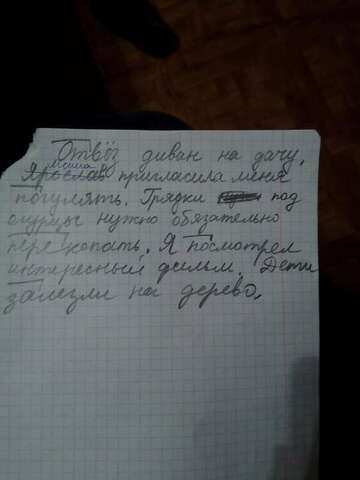 Отвёз диван на дачу.
Маша
Ярослав пригласила меня
погулять. Грядки под
огурцы нужно обязательно
перекопать. Я посмотрел
интересный фильм. Дети
залезли на дерево.